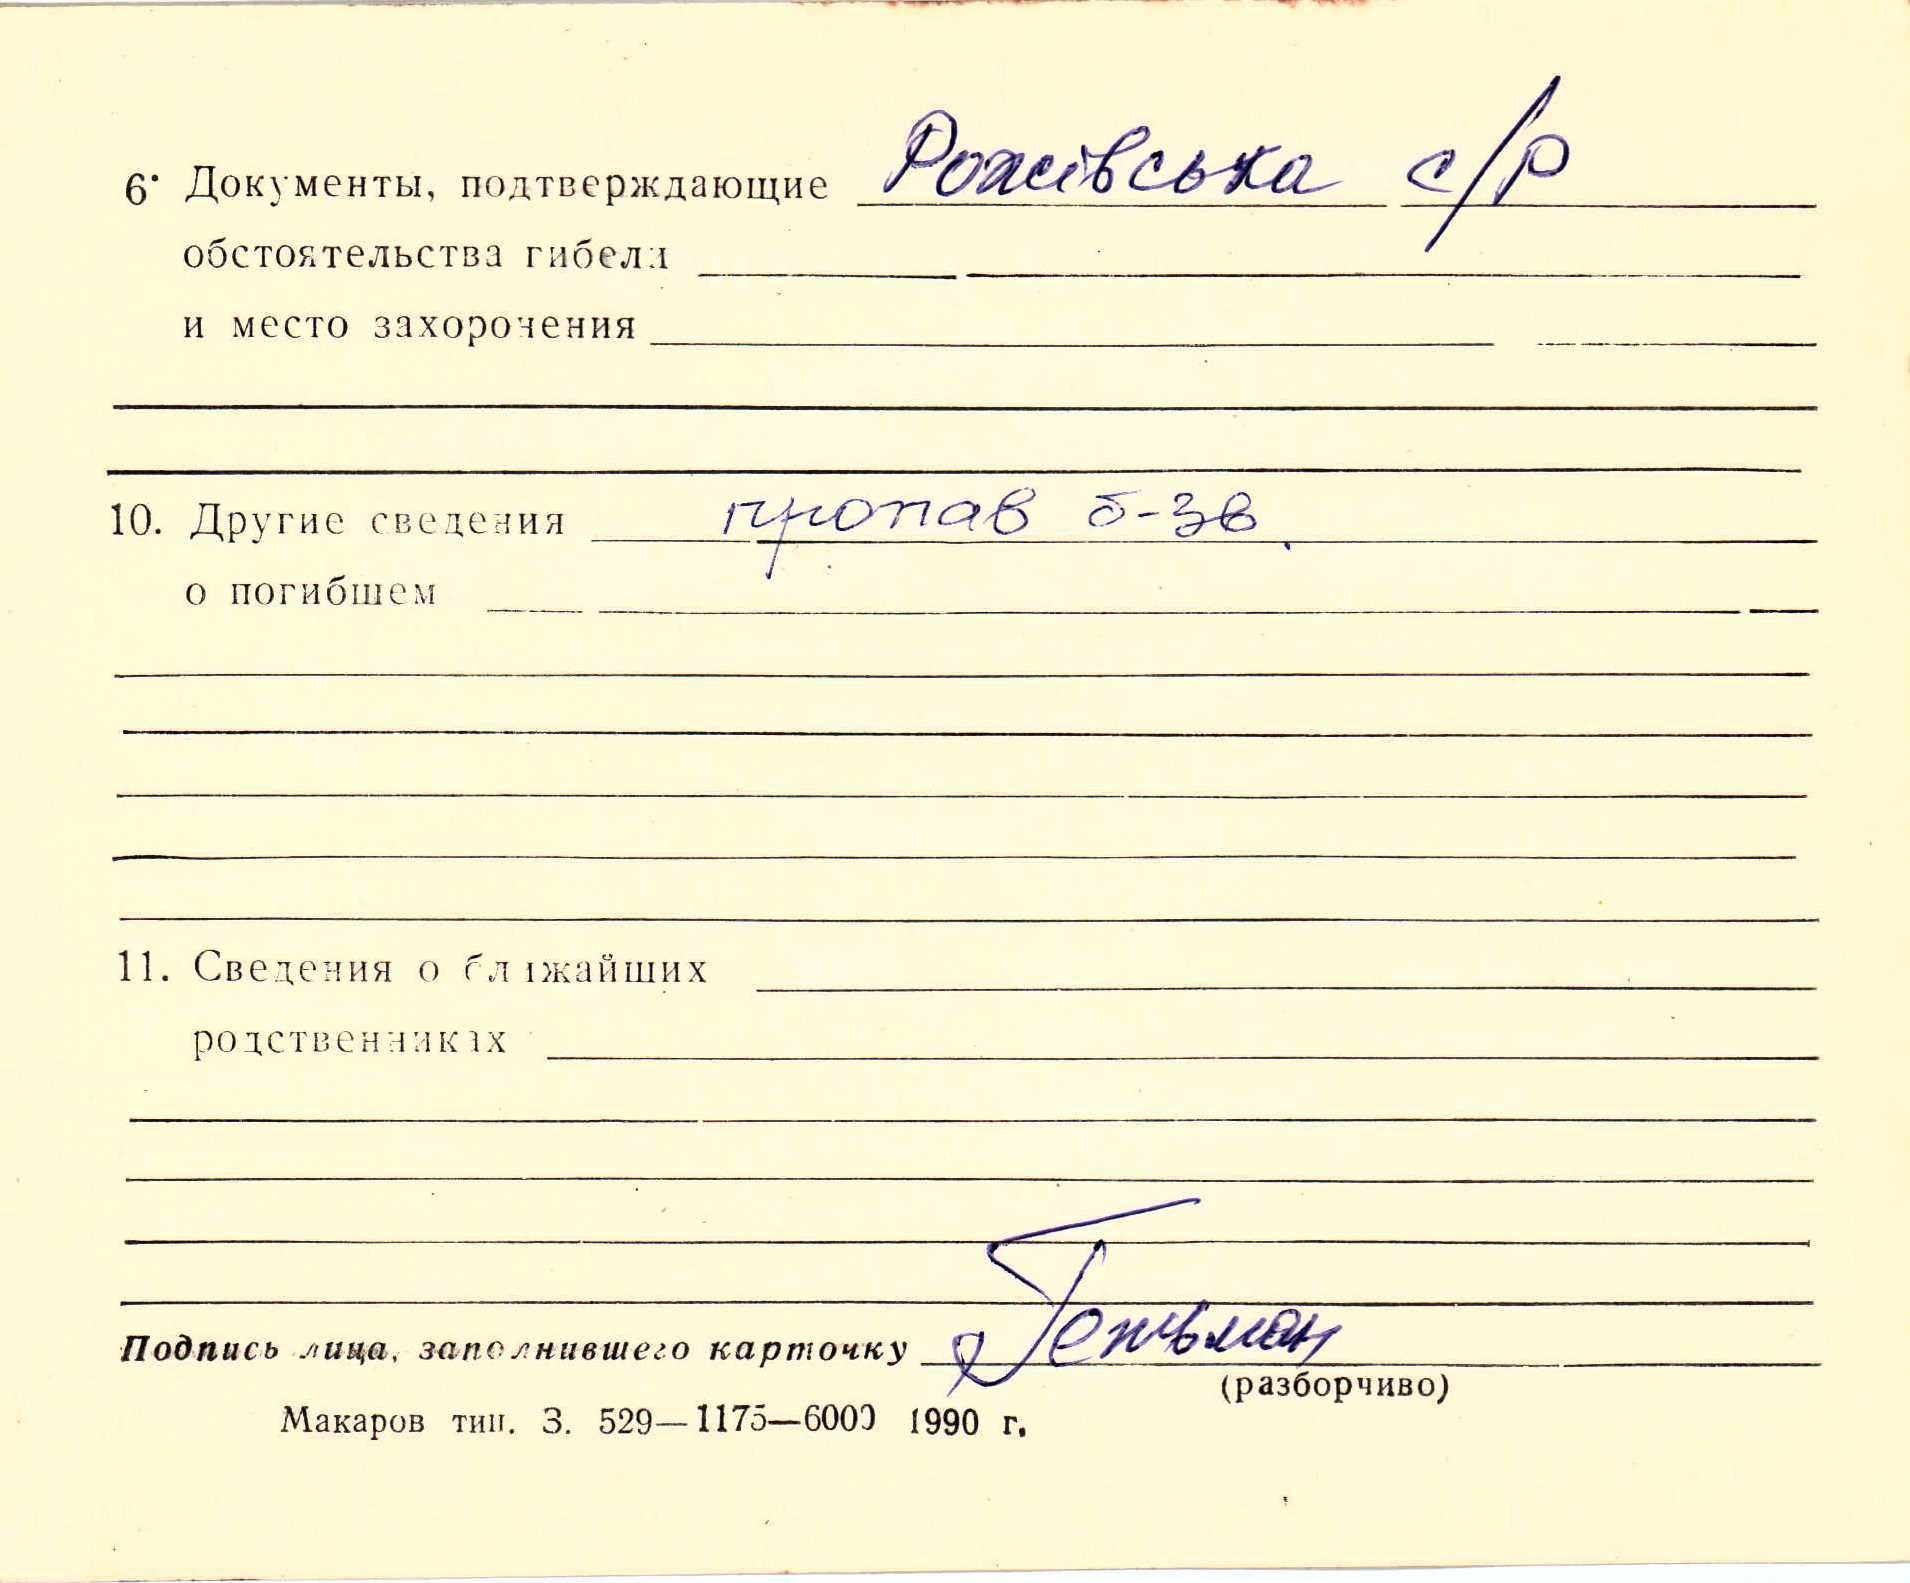 6. Документы, подтверждающие Рожівська с/р
обстоятельства гибели
и место захоронения
10. Другие сведения пропав б-зв.
о погибшем
11. Сведения о ближайших
родственниках
Подпись лица, заполнившего карточку Гетьман
(разборчиво)
Макаров тип. З. 529—1175—6000 1990 г.